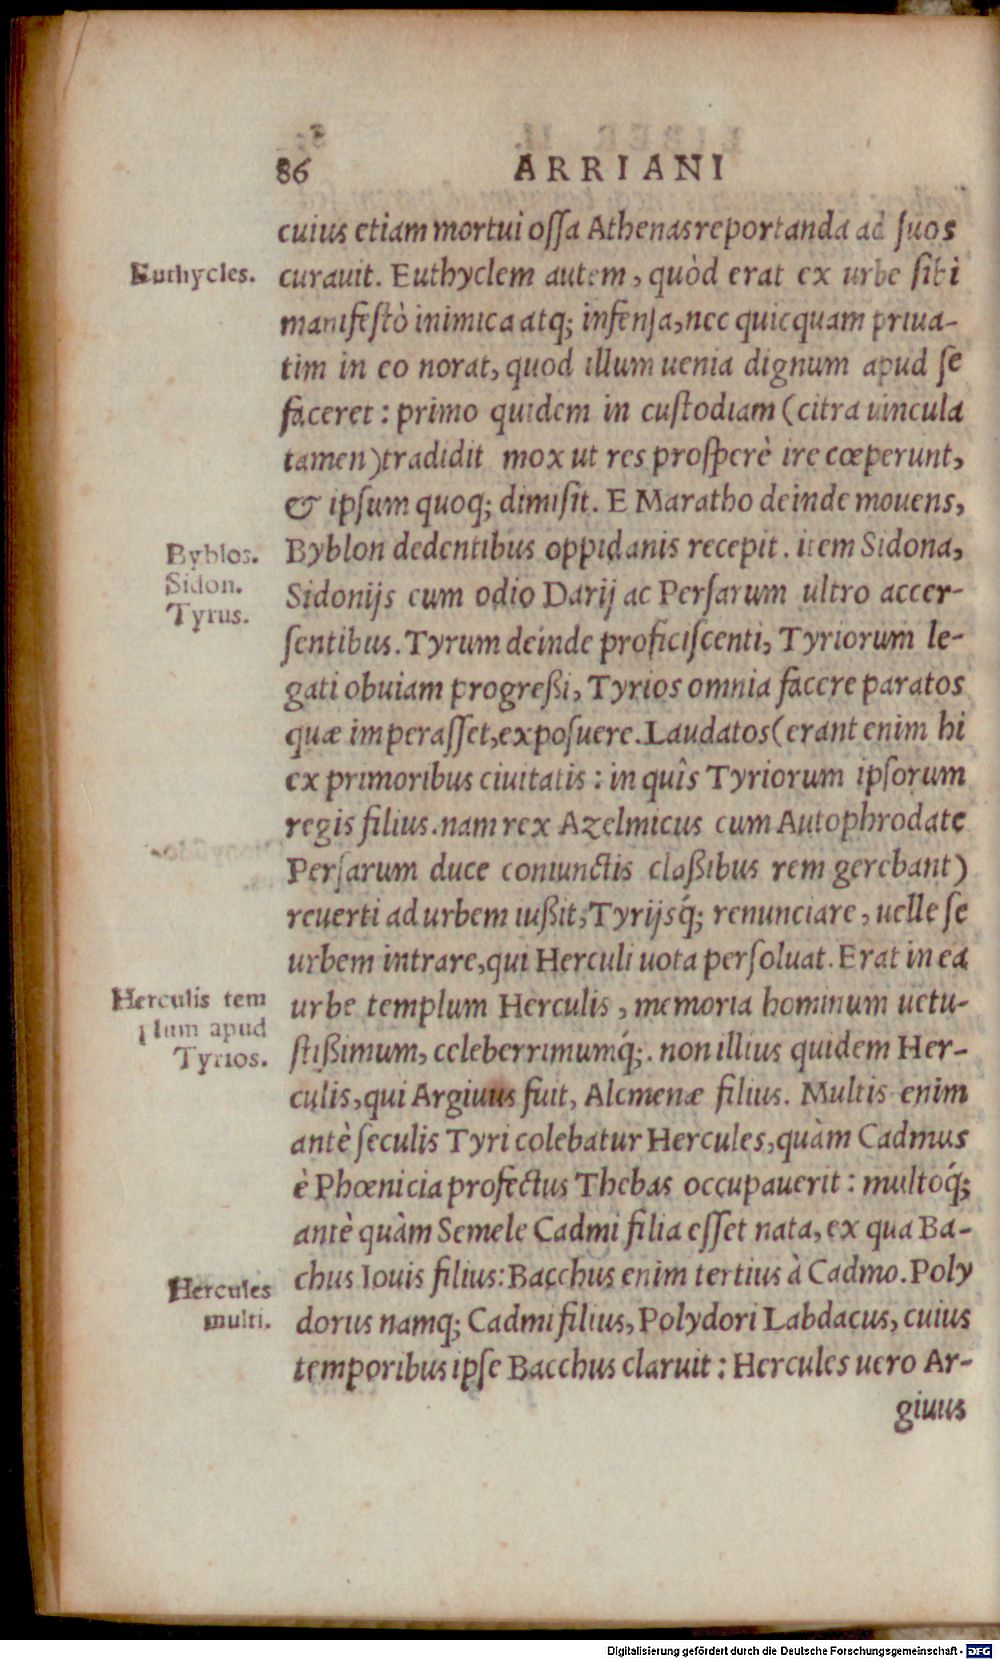 86 ARRIANI
cuius etiam mortui ossa Athenas reportanda ad suos
Euthycles.
curauit. Euthyclem autem, quòd erat ex urbe sibi
manifestò inimica atq; infensa, nec quicquam priua-
tim in eo norat, quod illum uenia dignum apud se
faceret: primo quidem in custodiam (citra uincula
tamen) tradidit mox ut res prosperè ire cœperunt,
& ipsum quoq; dimisit. E Maratho deinde mouens,
Byblos.
Byblon dedentibus oppidanis recepit. item Sidona,
Sidon.
Sidonijs eum odio Darij ac Persarum ultro accer-
Tyrus.
sentibus. Tyrum deinde proficiscenti, Tyriorum le-
gati obuiam progreßi, Tyrios omnia facere paratos
quæ imperasset, exposuere. Laudatos (erant enim hi
ex primoribus ciuitatis: in quîs Tyriorum ipsorum
regis filius. nam rex Azelmicus cum Autophrodate
Persarum duce coniunctis claßibus rem gerebant)
reuerti ad urbem iußit, Tyrijsq́; renunciare, uelle se
urbem intrare, qui Herculi uota persoluat. Erat in ea
Herculis tem
plum apud
Tyrios.
urbe templum Herculis, memoria hominum uetu-
stißimum, celeberrimumq́;. non illius quidem Her-
culis, qui Argiuus fuit, Alcmenæ filius. Multis enim
antè seculis Tyri colebatur Hercules, quàm Cadmus
è Phœnicia profectus Thebas occupauerit: multoq́;
antè quàm Semele Cadmi filia esset nata, ex qua Ba-
chus Iouis filius: Bacchus enim tertius à Cadmo. Poly
Hercules
multi.
dorus namq; Cadmi filius, Polydori Labdacus, cuius
temporibus ipse Bacchus claruit: Hercules uero Ar-
giuus
Digitalisierung gefördert durch die Deutsche Forschungsgemeinschaft - DFG